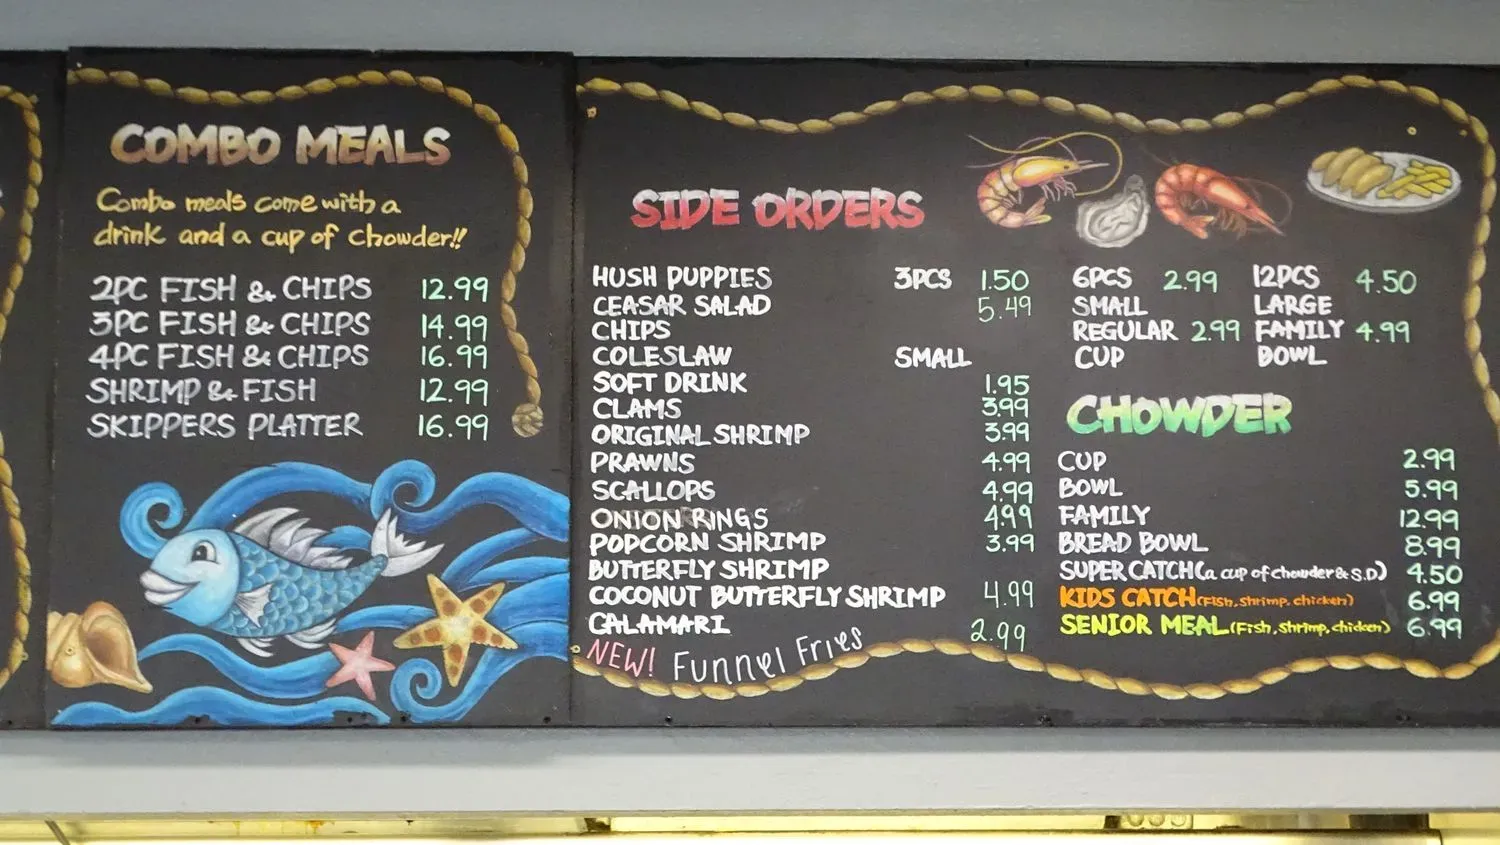 COMBO MEALS
Combo meals come with a
drink and a cup of chowder!!
2PC FISH & CHIPS 12.99
3PC FISH & CHIPS 14.99
4PC FISH & CHIPS 16.99
SHRIMP & FISH 12.99
SKIPPERS PLATTER 16.99
SIDE ORDERS
HUSH PUPPIES 3PCS 1.50 6PCS 2.99 12PCS 4.50
CEASAR SALAD 5.49 SMALL LARGE
CHIPS REGULAR 2.99 FAMILY 4.99
COLESLAW SMALL CUP BOWL
SOFT DRINK 1.95
CLAMS 3.99
ORIGINAL SHRIMP 3.99
PRAWNS 4.99
SCALLOPS 4.99
ONION RINGS 4.99
POPCORN SHRIMP 3.99
BUTTERFLY SHRIMP
COCONUT BUTTERFLY SHRIMP 4.99
CALAMARI 2.99
NEW! Funnel Fries
CHOWDER
CUP 2.99
BOWL 5.99
FAMILY 12.99
BREAD BOWL 8.99
SUPER CATCH (a cup of chowder & S.D) 4.50
KIDS CATCH (Fish, shrimp, chicken) 6.99
SENIOR MEAL (Fish, shrimp, chicken) 6.99